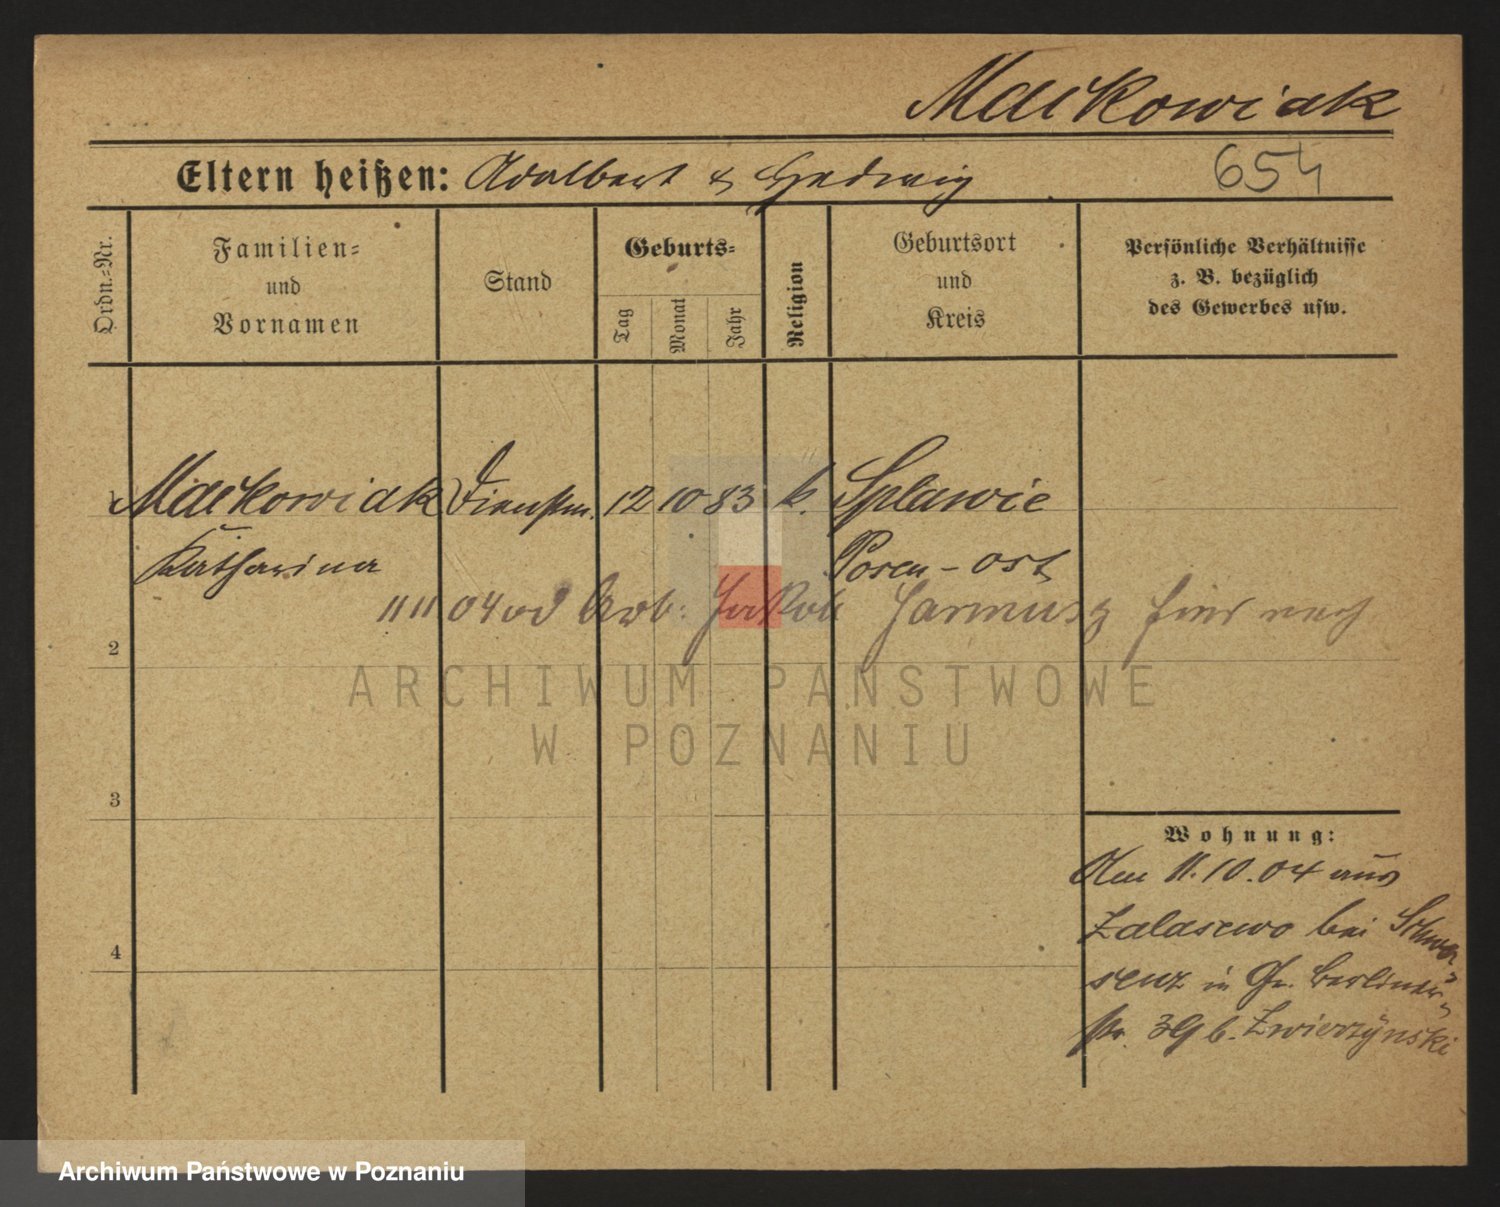 Maćkowiak
Eltern heißen: Adalbert & Hedwig 654
Ordn.=Nr.
Familien=
und
Vornamen
Stand
Geburts=
Tag
Monat
Jahr
Religion
Geburtsort
und
Kreis
Persönliche Verhältnisse
z. B. bezüglich
des Gewerbes usw.
1 Maćkowiak Dienstm. 12 10 83 k. Splawie
Katharina Posen - ost
11 11 04 Arb: Jakob Jarmusz hier
2
ARCHIWUM PAŃSTWOWE
W POZNANIU
3
4
Wohnung:
Am 11.10.04 aus
Zalasewo bei Schwer-
senz in Gr. Berliner-
str. 39 b. Zwierzynski
Archiwum Państwowe w Poznaniu